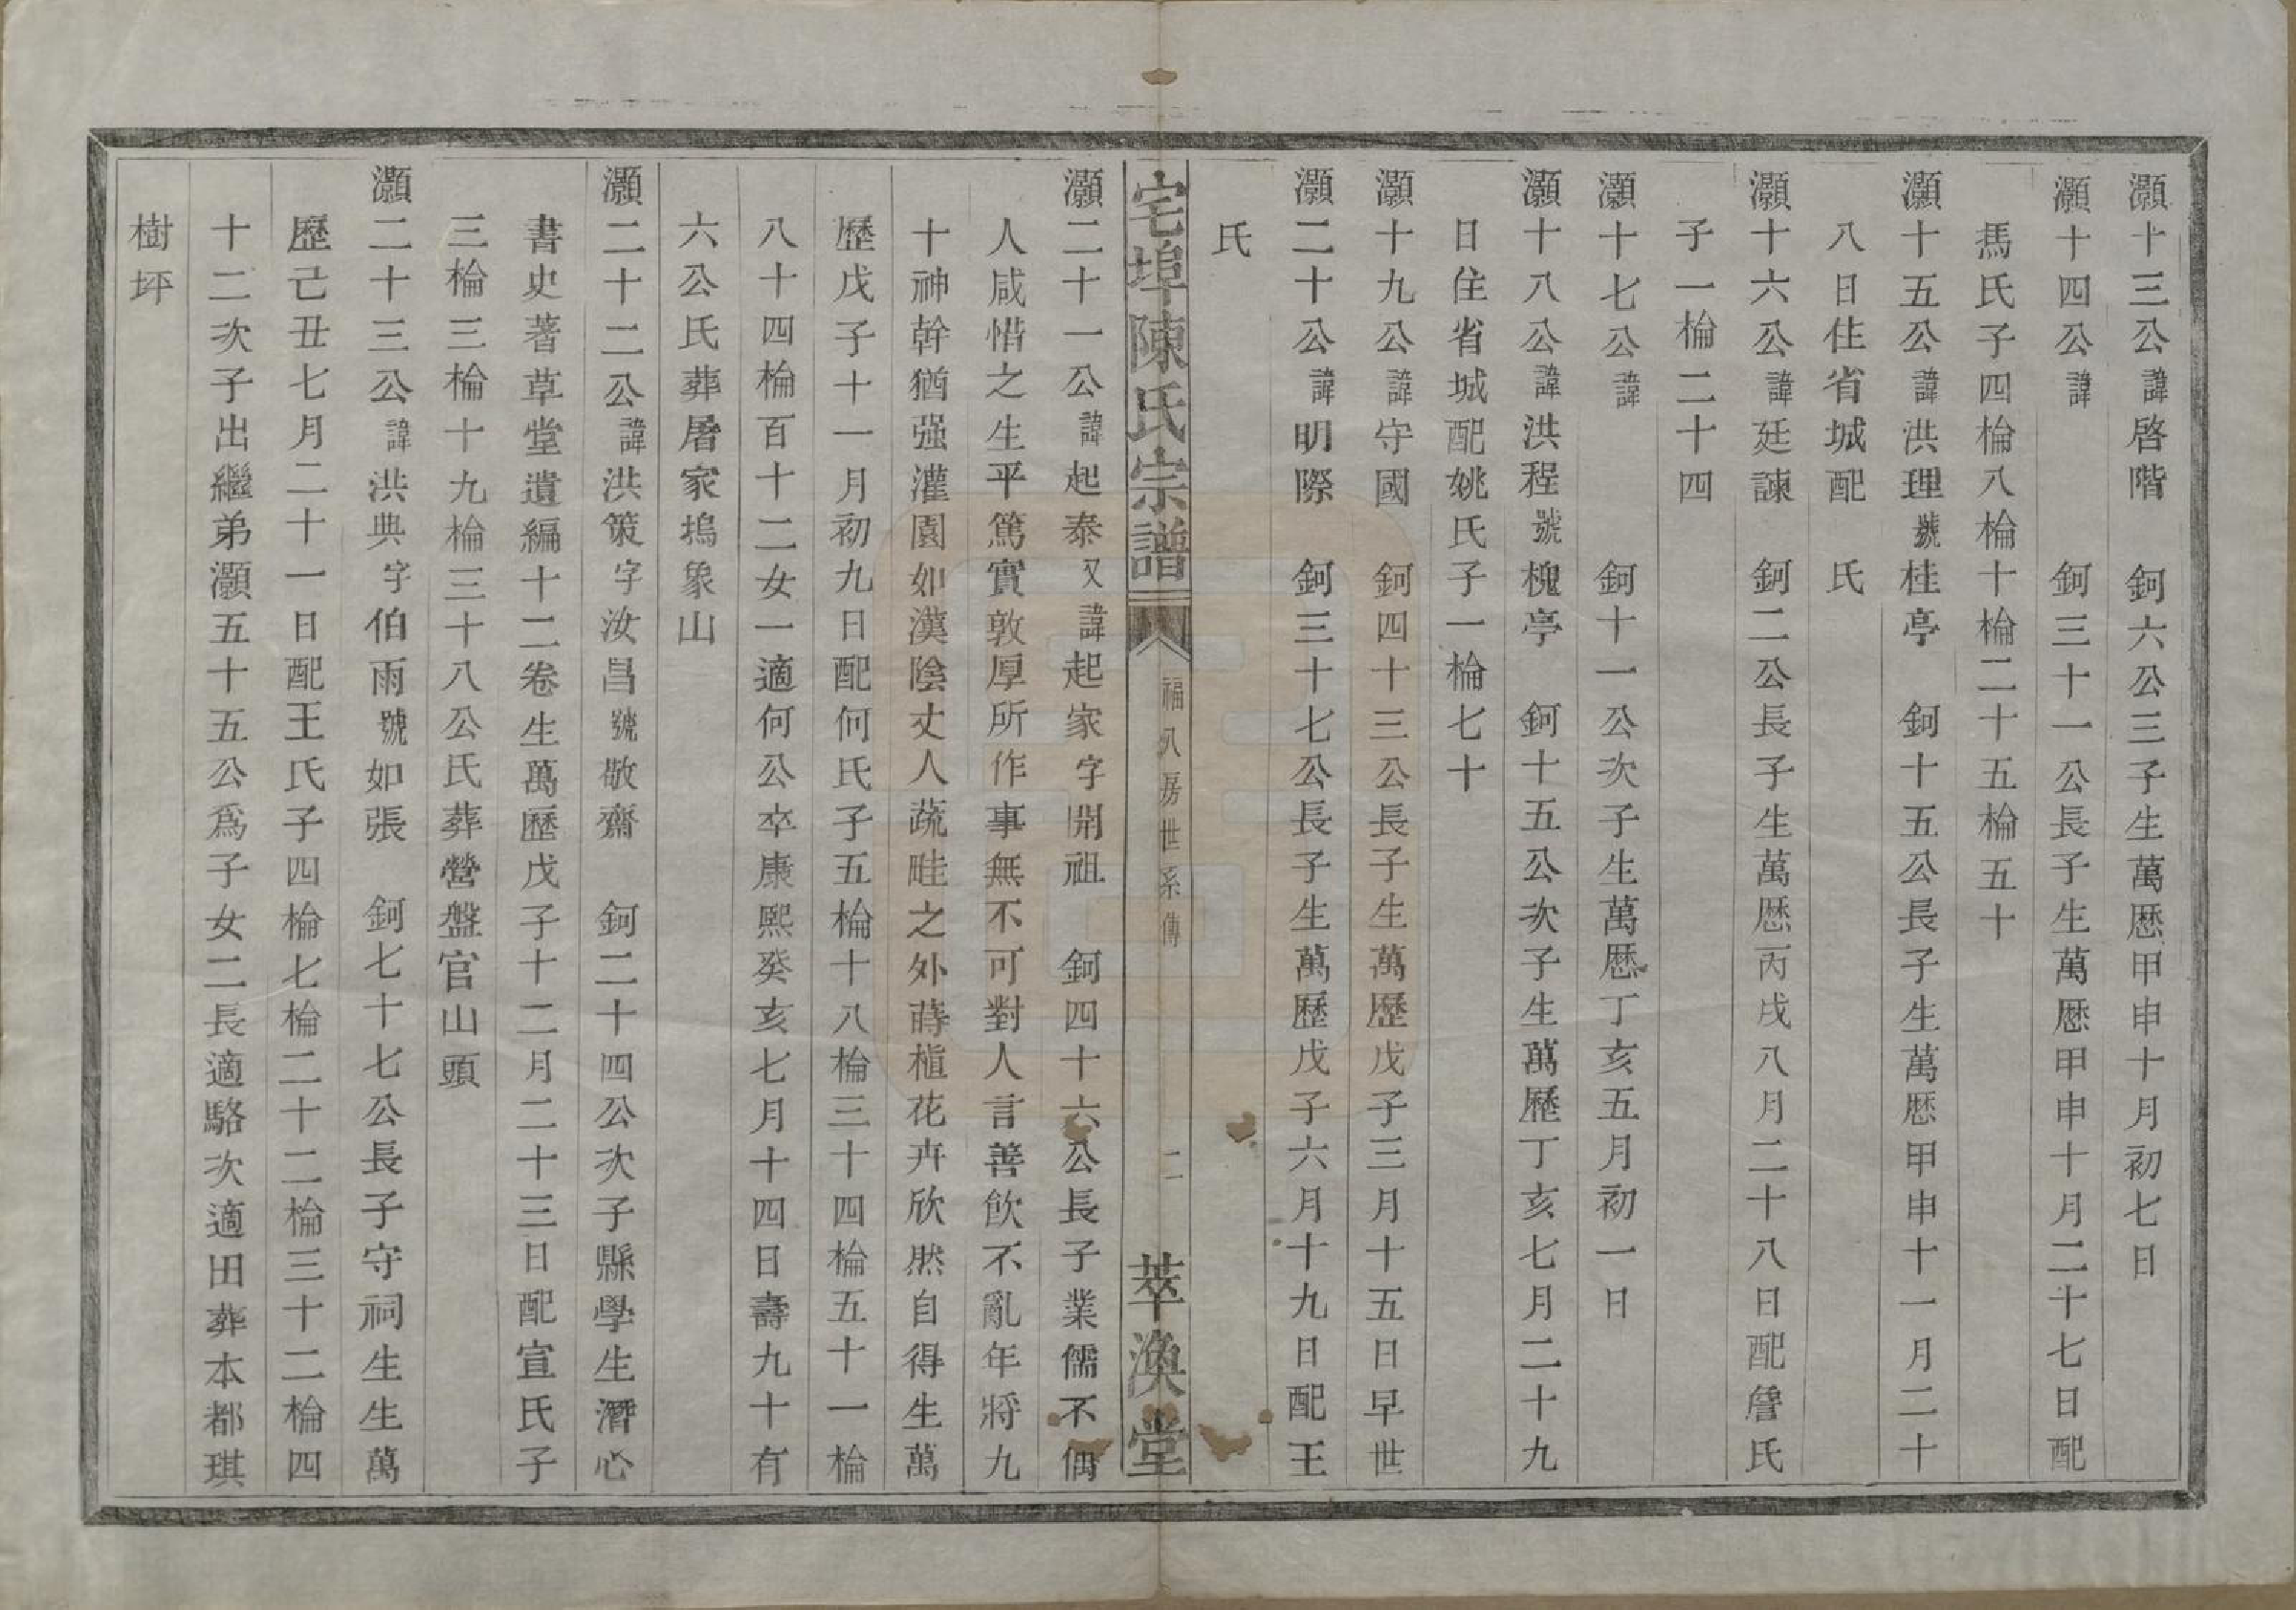 灝十三公諱啓階　鈳六公三子生萬歷甲申十月初七日
灝十四公諱　鈳三十一公長子生萬歷甲申十月二十七日配
馬氏子四棆八棆十棆二十五棆五十
灝十五公諱洪理號桂亭　鈳十五公長子生萬歷甲申十一月二十
八日住省城配　氏
灝十六公諱廷諫　鈳二公長子生萬歷丙戌八月二十八日配詹氏
子一棆二十四
灝十七公諱　鈳十一公次子生萬歷丁亥五月初一日
灝十八公諱洪程號槐亭　鈳十五公次子生萬歷丁亥七月二十九
日住省城配姚氏子一棆七十
灝十九公諱守國　鈳四十三公長子生萬歷戊子三月十五日早世
灝二十公諱明際　鈳三十七公長子生萬歷戊子六月十九日配王
氏
宅埠陳氏宗譜　福八房世系傳　二　萃渙堂
灝二十一公諱起泰又諱起家字開祖　鈳四十六公長子業儒不偶
人咸惜之生平篤實敦厚所作事無不可對人言善飲不亂年將九
十神幹猶强灌園如漢陰丈人蔬畦之外蒔植花卉欣然自得生萬
歷戊子十一月初九日配何氏子五棆十八棆三十四棆五十一棆
八十四棆百十二女一適何公卒康熙癸亥七月十四日壽九十有
六公氏葬屠家塢象山
灝二十二公諱洪策字汝昌號敬齋　鈳二十四公次子縣學生潛心
書史著草堂遺編十二卷生萬歷戊子十二月二十三日配宣氏子
三棆三棆十九棆三十八公氏葬營盤官山頭
灝二十三公諱洪典字伯雨號如張　鈳七十七公長子守祠生生萬
歷己丑七月二十一日配王氏子四棆七棆二十二棆三十二棆四
十二次子出繼弟灝五十五公爲子女二長適駱次適田葬本都琪
樹坪